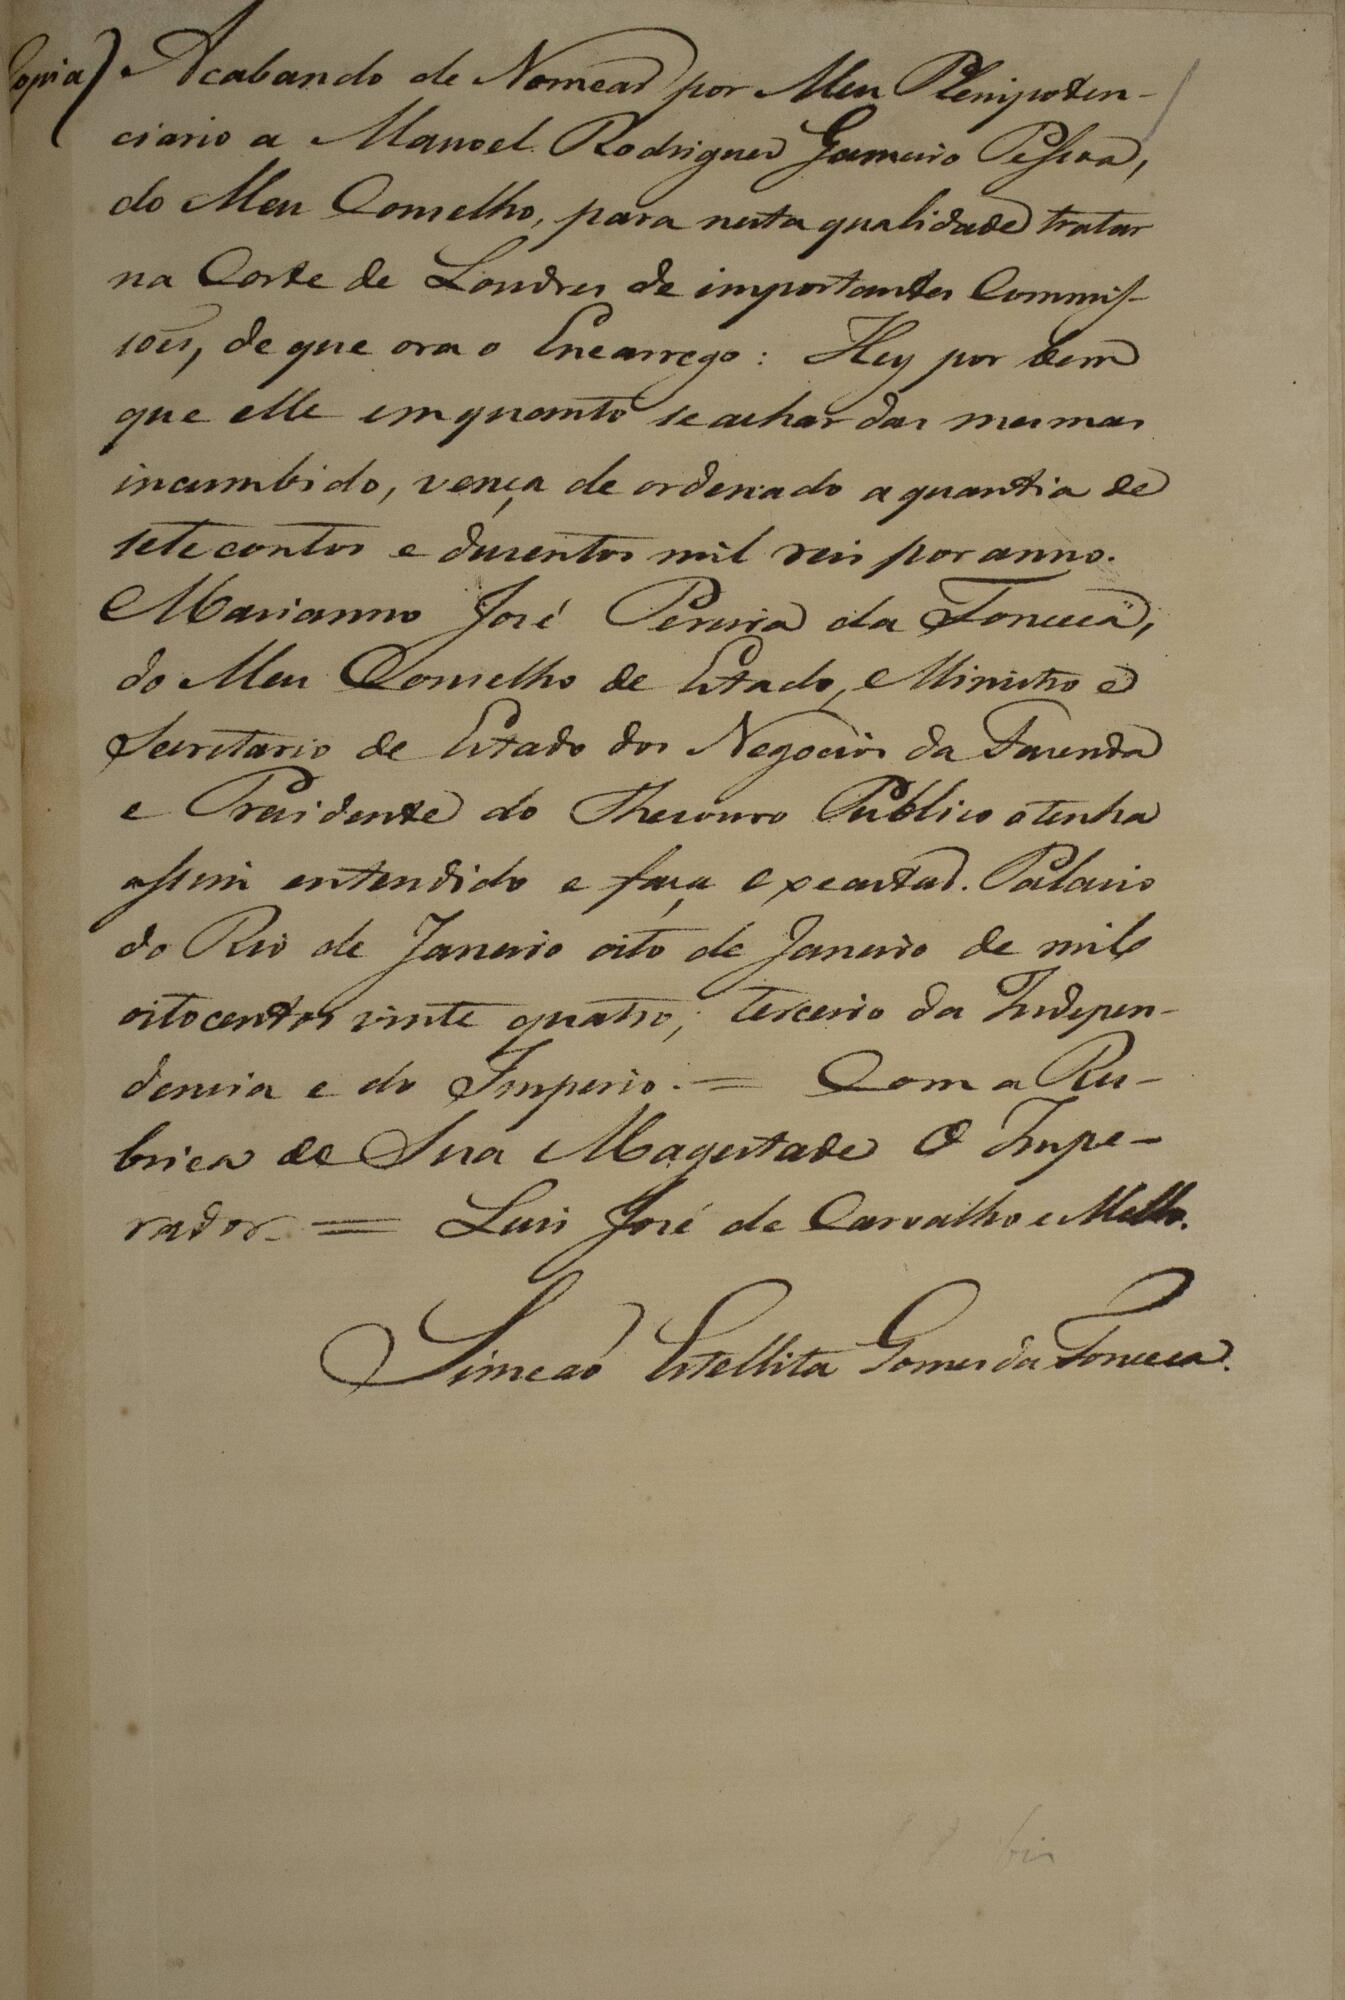 Copia) Acabando de Nomear por Meu Plenipoten-
ciario a Manoel Rodrigues Gameiro Pessoa,
do Meu Conselho, para nesta qualidade tratar
na Corte de Londres de importantes Commis-
soẽs, de que ora o Encarrego: Hey por bem
que elle em quanto se achar das mesmas
incumbido, vença de ordenado a quantia de
sete contos e dusentos mil reis por anno.
Marianno José Pereira da Fonceca,
do Meu Conselho de Estado, Ministro e
Secretario de Estado dos Negocios da Fazenda
e Presidente do Thesouro Publico o tenha
assim entendido e faça executar. Palacio
do Rio de Janeiro oito de Janeiro de mil
oitocentos vinte quatro, terceiro da Indepen-
dencia e do Imperio. = Com a Ru-
brica de Sua Magestade O Impe-
rador. = Luis José de Carvalho e Mello.
Simeaõ Estellita Gomes da Fonceca.
bis